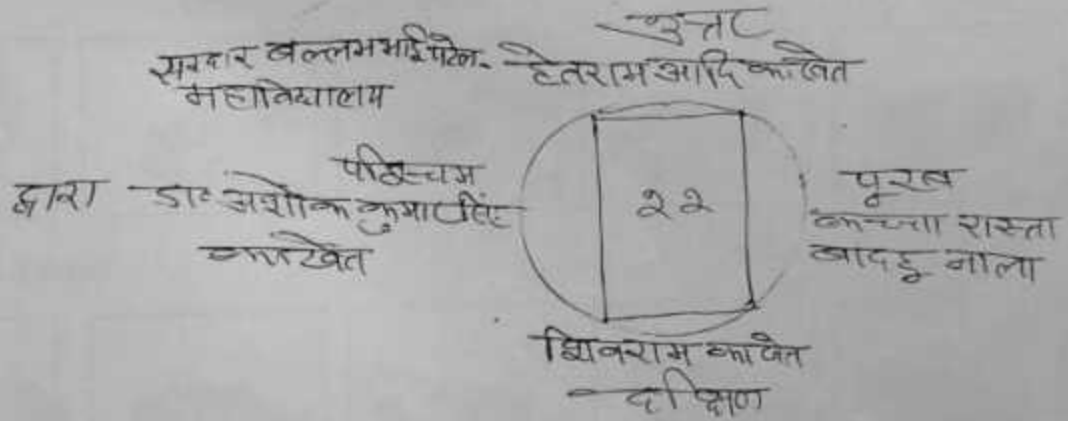 उत्तर
सरदार बल्लभभाई पटेल- हेतराम आदि का खेत
महाविद्यालय
पश्चिम
द्वारा डा० अशोक कुमार सिंह
का खेत
२२
पूरब
कच्चा रास्ता
बादहू नाला
शिवराम का खेत
दक्षिण